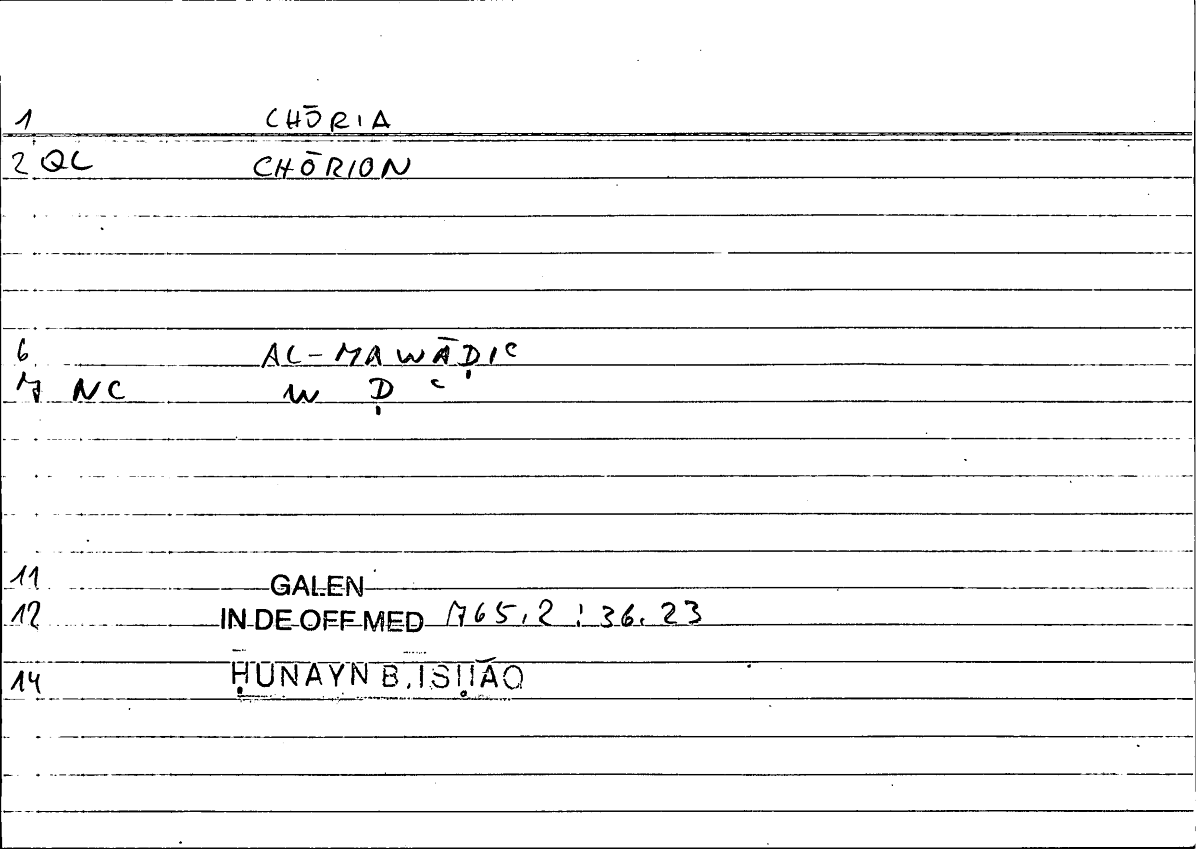 1 CHŌRIA
2 QC CHŌRION
6 AL-MAWĀḌIC
7 NC W Ḍ C
11 GALEN
12 IN DE OFF MED 765,2 : 36.23
14 ḤUNAYN B. ISḤĀQ